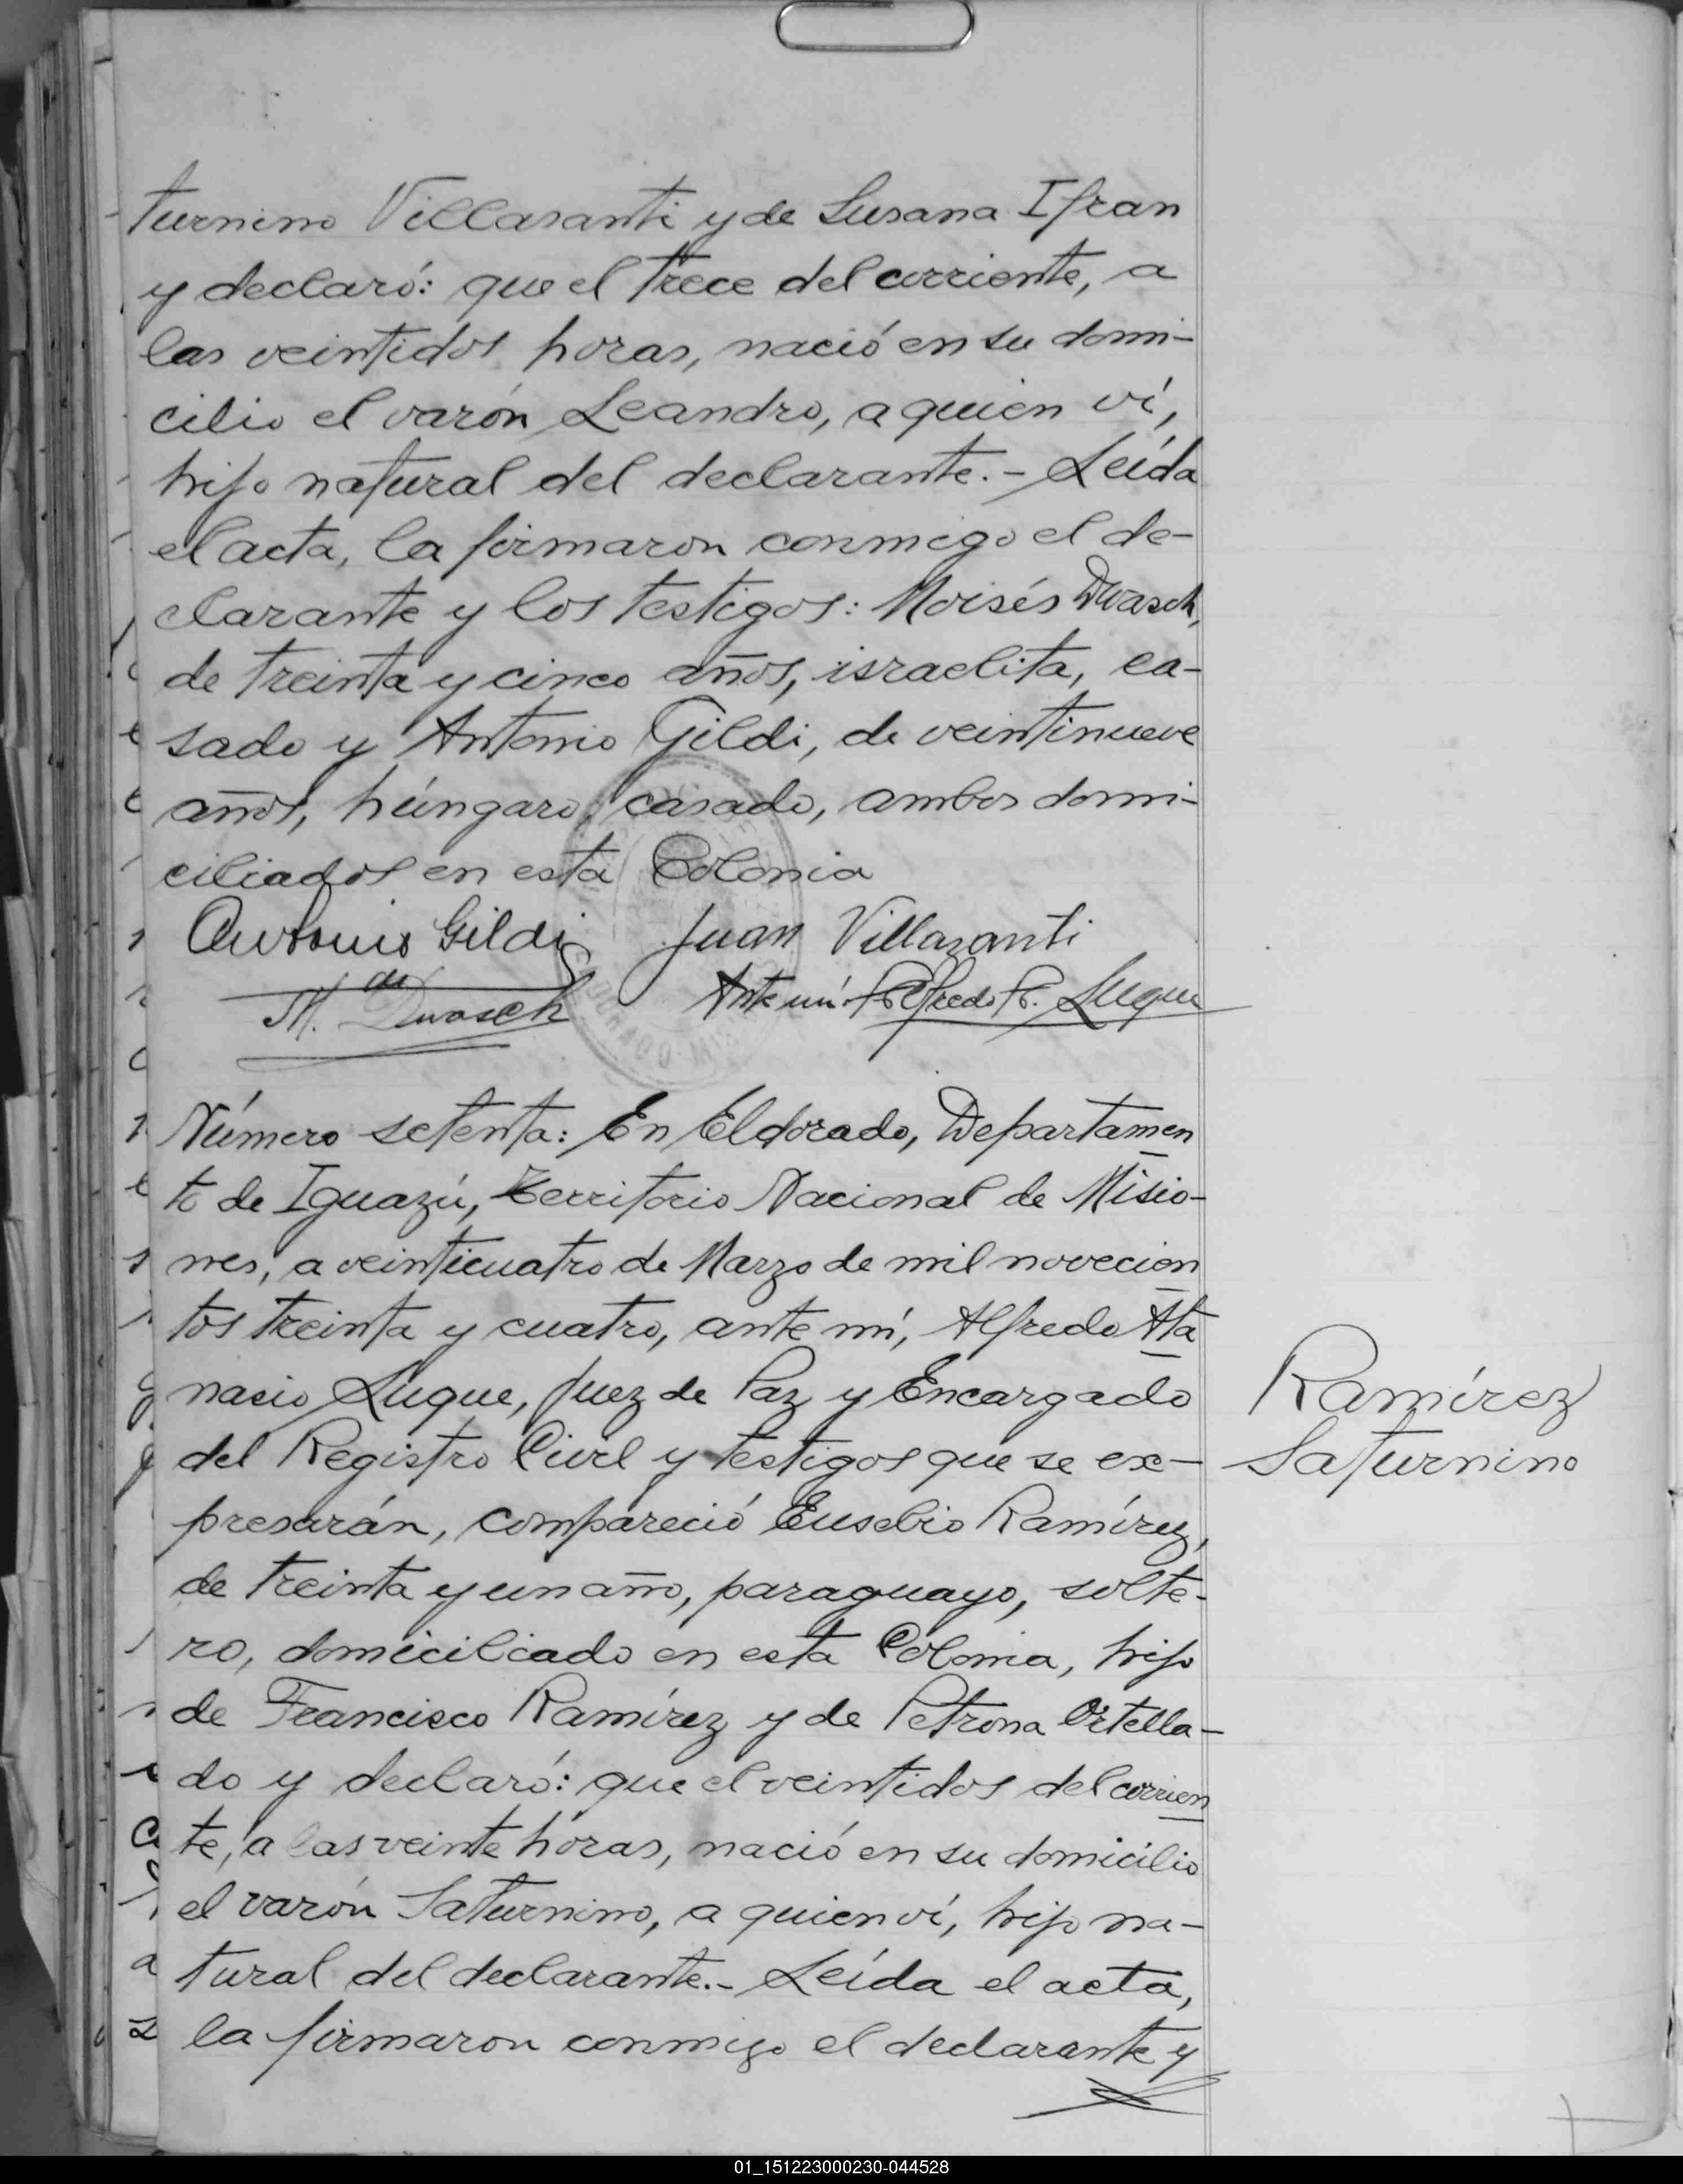 turnino Villasanti y de Susana Ifran
y declaró: que el trece del corriente, a
las veintidos horas, nació en su domi-
cilio el varón Leandro, a quien ví,
hijo natural del declarante.- Leída
el acta, la firmaron conmigo el de-
clarante y los testigos: Moisés Dwasch,
de treinta y cinco años, israelita, ca-
sado y Antonio Gildi, de veintinueve
años, húngaro, casado, ambos domi-
ciliados en esta Colonia
Antonio Gildi Juan Villazanti
M. Dwasch Ante mí: Alfredo A. Luque
Número setenta: En Eldorado, Departamen
to de Iguazú, Territorio Nacional de Misio-
nes, a veinticuatro de Marzo de mil novecien
tos treinta y cuatro, ante mí, Alfredo Ata
nasio Luque, Juez de Paz y Encargado
del Registro Civil y testigos que se ex-
presarán, compareció Eusebio Ramírez,
de treinta y un año, paraguayo, solte-
ro, domiciliado en esta Colonia, hijo
de Francisco Ramírez y de Petrona Ortella-
do y declaró: que el veintidos del corrien
te, a las veinte horas, nació en su domicilio
el varón Saturnino, a quien ví, hijo na-
tural del declarante.- Leída el acta,
la firmaron conmigo el declarante y
Ramírez
Saturnino
01_151223000230-044528